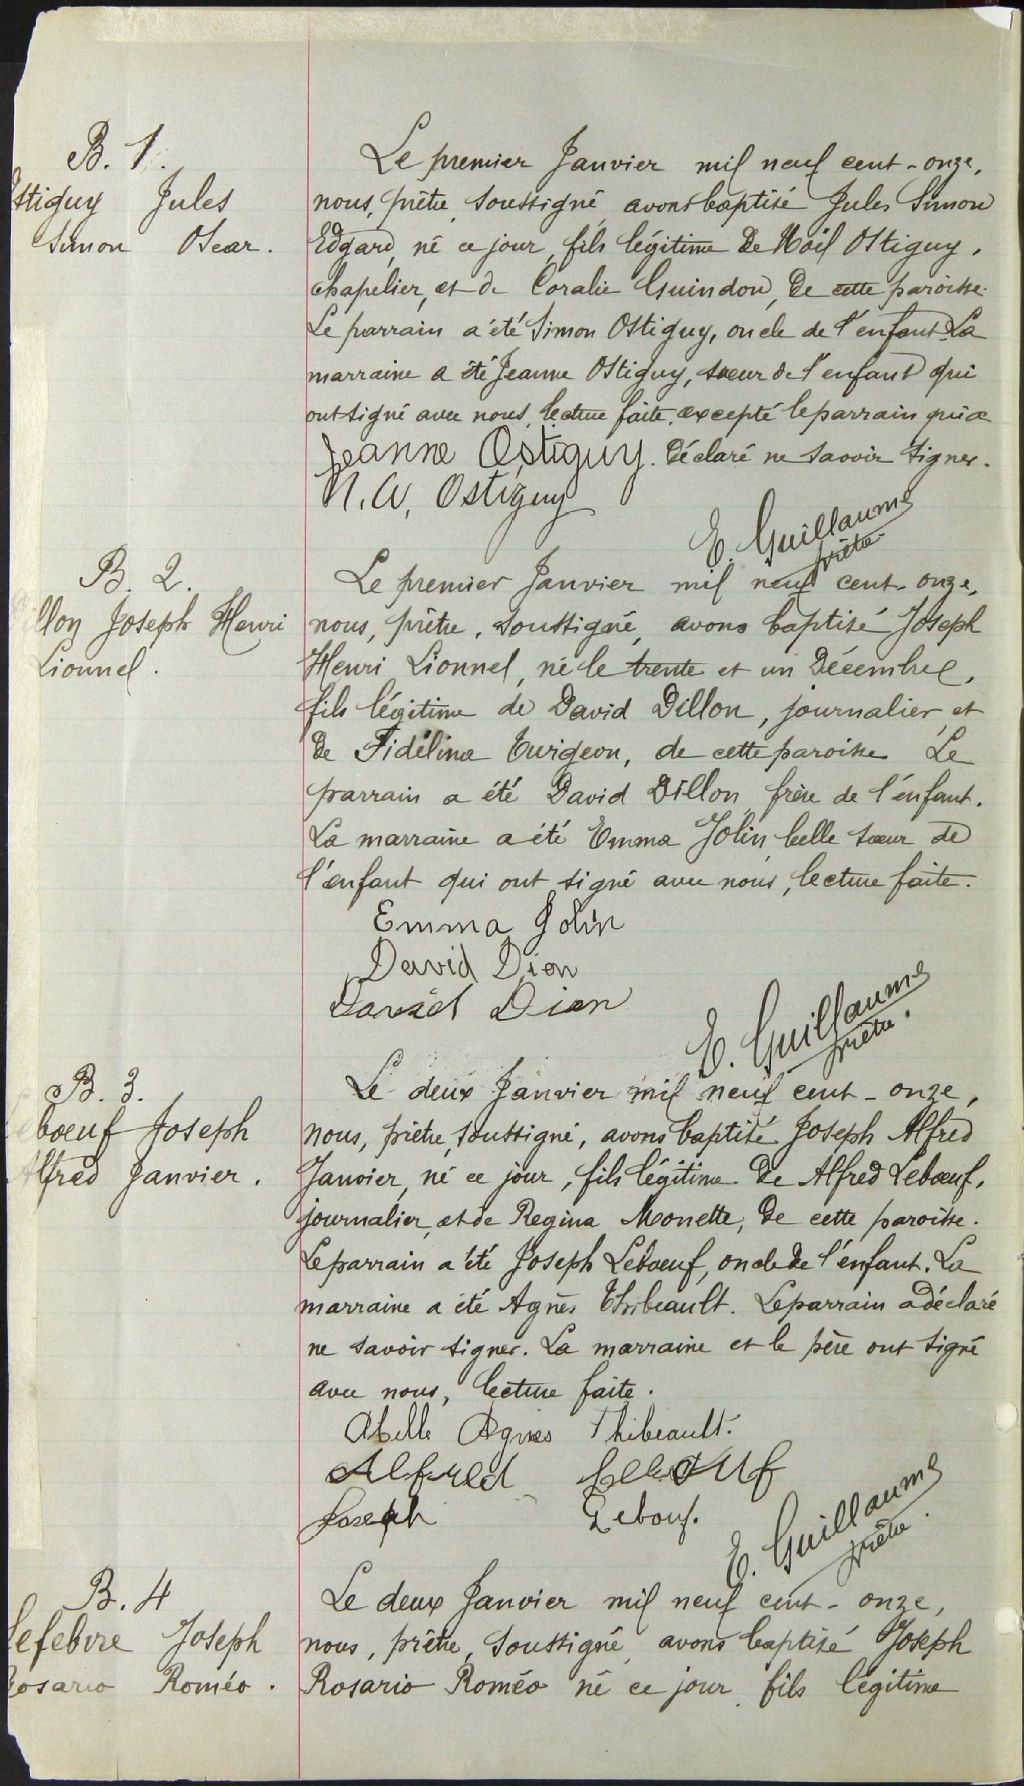 B. 1.
Ostiguy Jules
Simon Oscar.
Le premier Janvier mil neuf cent-onze,
nous, prêtre, soussigné avons baptisé Jules Simon
Edgard, né ce jour, fils légitime de Noël Ostiguy,
chapelier, et de Coralie Guindon, de cette paroisse.
Le parrain a été Simon Ostiguy, oncle de l'enfant. La
marraine a été Jeanne Ostiguy, sœur de l'enfant qui
ont signé avec nous, lecture faite, excepté le parrain qui a
Jeanne Ostiguy. déclaré ne savoir signer.
N. A. Ostiguy
E. Guillaume
prêtre
B. 2.
llon Joseph Henri
Lionnel.
Le premier Janvier mil neuf cent-onze,
nous, prêtre, soussigné, avons baptisé Joseph
Henri Lionnel, né le trente et un Décembre,
fils légitime de David Dillon, journalier, et
de Fidélina Turgeon, de cette paroisse. Le
parrain a été David Dillon, frère de l'enfant.
La marraine a été Emma Jolin belle sœur de
l'enfant qui ont signé avec nous, lecture faite.
Emma Jolin
David Dion
David Dion
E. Guillaume
prêtre.
B. 3.
Lebœuf Joseph
Alfred Janvier.
Le deux Janvier mil neuf cent-onze,
nous, prêtre, soussigné, avons baptisé Joseph Alfred
Janvier, né ce jour, fils légitime de Alfred Lebœuf,
journalier, et de Regina Monette, de cette paroisse.
Le parrain a été Joseph Lebœuf, oncle de l'enfant. La
marraine a été Agnès Thibeault. Le parrain a déclaré
ne savoir signer. La marraine et le père ont signé
avec nous, lecture faite.
Agnes Thibeault.
Alfred Lebœuf
Joseph Lebouf.
E. Guillaume
prêtre.
B. 4
Lefebvre Joseph
Rosario Roméo.
Le deux Janvier mil neuf cent-onze,
nous, prêtre, soussigné, avons baptisé Joseph
Rosario Roméo né ce jour, fils légitime